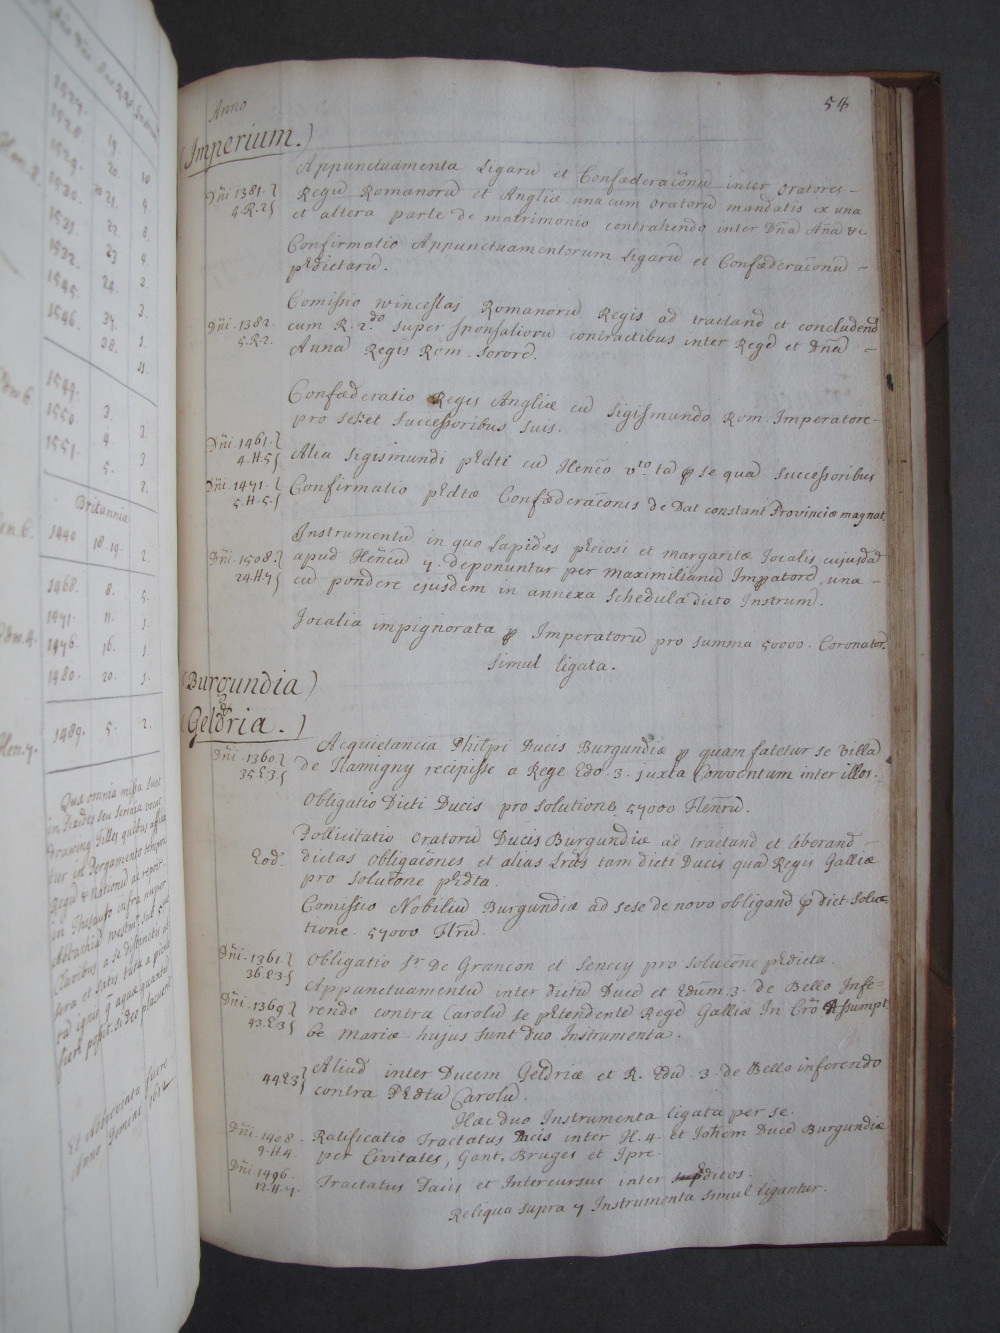 54
Anno
(Imperium.)
Appunctuamenta Ligarū et Confæderac̄onū inter Oratores -
Dn̄i 1381. Regū Romanorū et Angliæ una cum Oratorū mandatis ex una
4.R.2 et altera parte de matrimonio contrahendo inter Dn̄ā Añā &c
Confirmatio Appunctuamentorum Ligarū et Confæderac̄onū -
p̄dictarū.
Comissio Winceslas Romanorū Regis ad tractand et concludend
Dn̄i. 1382. cum R. 2.do super sponsaliorū contractibus inter Regē et Dn̄ā -
5.R.2. Annā Regis Rom. Sororē.
Confœderatio Regis Angliæ cū Sigismundo Rom. Imperatore-
pro se et Successoribus suis.
Dn̄i. 1461. Alia Sigismundi p̄dti cū Henc̄o vto tā p se quā Successoribus
4.H.5
Dn̄i. 1471. Confirmatio p̄dtæ Confœderac̄ones de Dat constant Provinciæ magnat.
5.H.5.
Instrumentū in quo Lapides p̄ciosi et margaritæ Jocalis cujusdā
Dn̄i. 1508. apud Hen̄cū 7. deponuntur per Maximilianū Imp̄atorē, una -
24.H.7 cū pondere ejusdem in annexa Schedula dicto Instrum̄.
Jocalia impignorata p Imperatorū pro summa 50000. Coronator.
simul ligata.
(Burgundia)
&
(Geldria.)
Acquietancia Philpi Ducis Burgundiæ p quam fatetur se villā
Dn̄i. 1360. de Flamigny recipisse a Rege Edo. 3. juxta Conventum inter illos.
35.E3
Obligatio Dicti Ducis pro solutione 57000 Flen̄rū.
Pollicitatio Oratorū Ducis Burgundiæ ad tractand et liberand -
Eod. dictas Obligac̄ones et alias Lrās tam dicti Ducis quā Regis Galliæ
pro soluc̄one p̄dta.
Comissio Nobiliū Burgundiæ ad sese de novo obligand p dict. Solu-
tione. 57000 Flrū.
Dn̄i. 1361. Obligatio Sr. De Grancon et Sencey pro soluc̄one p̄dicta.
36.E3
Appunctuamentū inter dictū Ducē et Edūm. 3. de Bello Infe-
Dn̄i. 1369. rendo contra Carolū se p̄tendentē Regē Galliæ In Cr̄o Assumpt
43.E3 be Mariæ hujus sunt duo Instrumenta.
44E3 Aliud inter Ducem Geldriæ et R. Edū 3. de Bello inferendo
contra P̄dtū Carolū.
Hæc duo Instrumenta ligata per se.
Dn̄i. 1408. Ratificatio Tractatus Pacis inter H.4. et Joh̄em Ducē Burgundiæ
9.H4. per Civitates, Gant, Bruges et Ipre.
Dn̄i. 1496. Tractatus Pacis et Intercursus inter p̄ditos.
12.H.7.
Reliqua supra 7 Instrumenta simul ligantur.
1527. 19. 10
1528. 20. 4
1529. 21. 8.
1530. 22. 4
1531. 23 2.
1532. 24. 3.
1545. 37. 1.
1546. 38. 11.
1549. 3. 3.
1550. 4. 3
1551. 5. 2.
Britannia
1440 18.19. 2.
1468. 8. 5.
1471. 11. 1.
1476. 16. 1
1480. 20. 1.
Hen. 7. 1489. 5. 2.
Quæ omnia missa sunt
in Pixides seu scrinia vocat
Drawing Tilles quibus affixa
tur in Pergamento tempora
Regū & Nationū ac reposit
in Thesauro infra nup
Abbachiā westm̄. sub
Clavibus a se distinctis
sera et satis tuta a
ra ignis p aqua quantū
fieri possit. si deo placuerit.
Et Abbreviata fuere
Anno Domini 1612